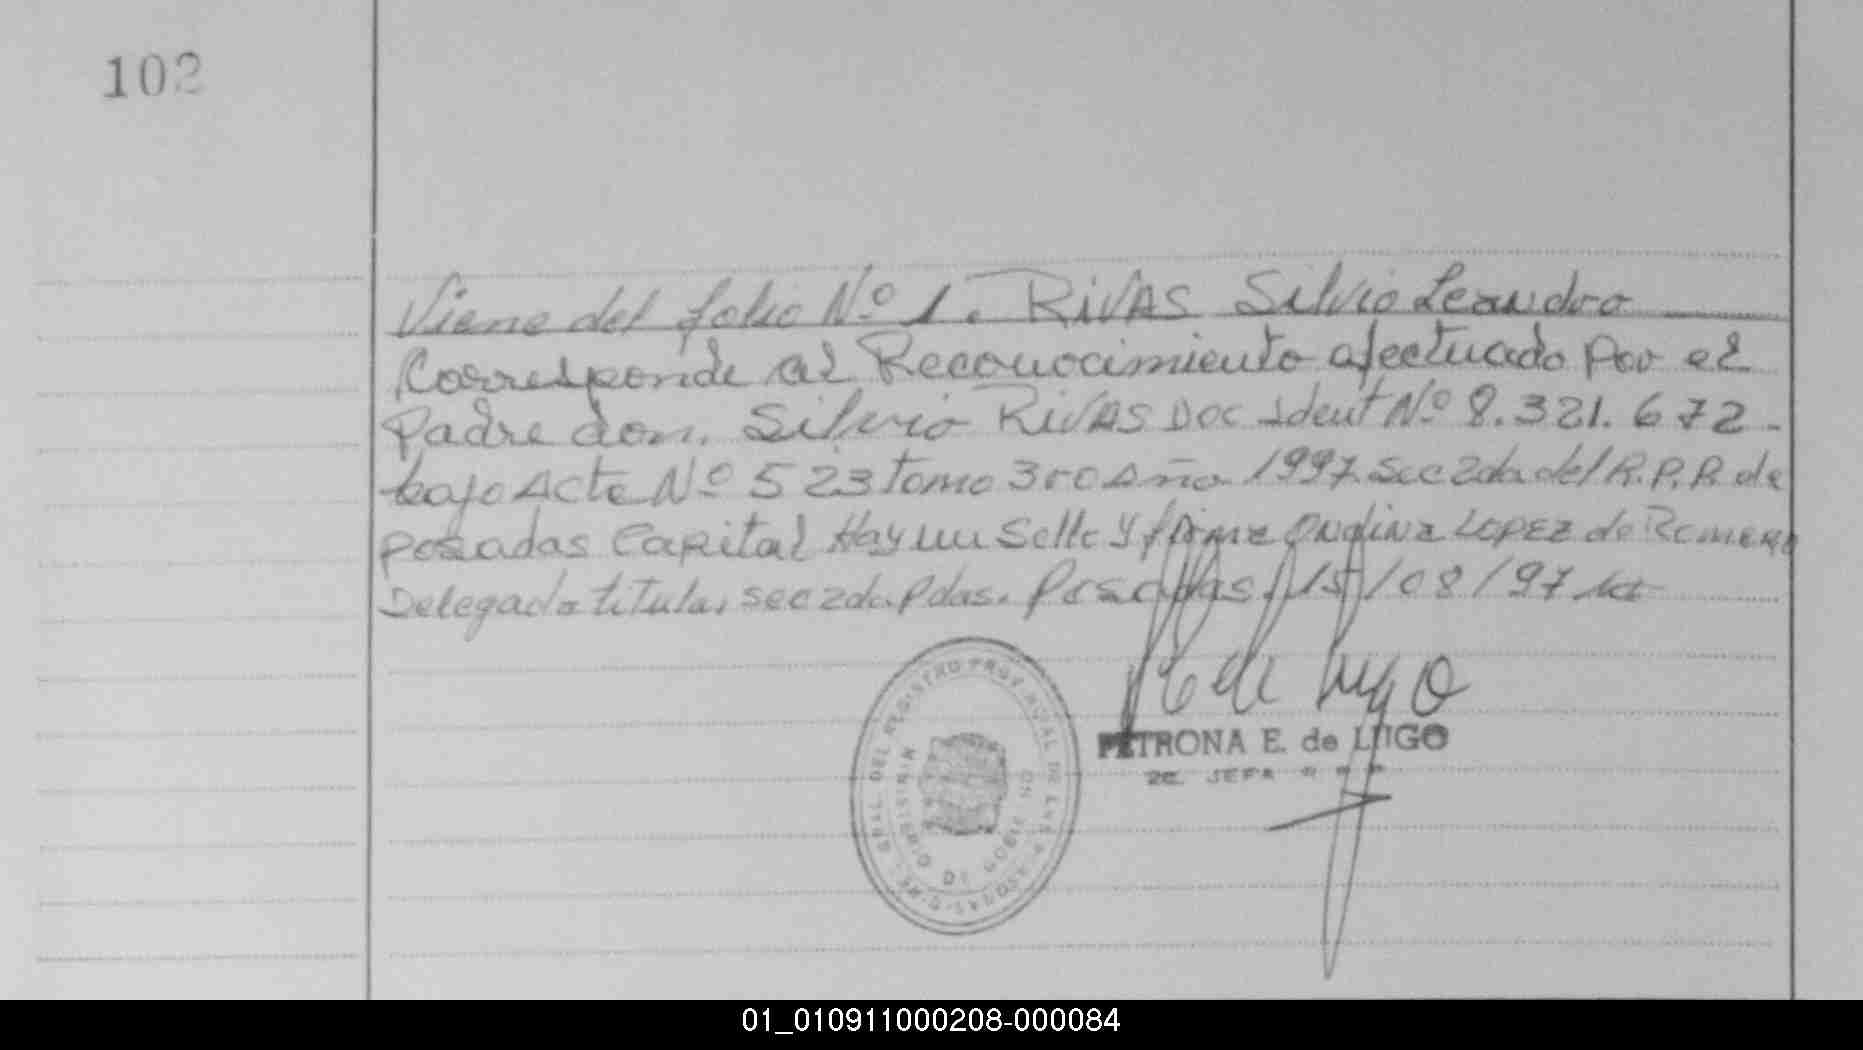 102
Viene del folio Nº 1. RIVAS Silvio Leandro
Corresponde al Reconocimiento afectuado por el
Padre don. Silvio RIVAS Doc Ident Nº 8.321.672-
bajo Acta Nº 523 tomo 3ro Año 1997 Sec 2da del R.P.P. de
posadas Capital Hay un Sello y firma Ondina LOPEZ de Romero
Delegada titular sec 2da. Pdas. Posadas 15/08/97
PETRONA E. de LUGO
2E. JEFA
GRAL DEL REGISTRO PROV
MINISTERIO DE GOBIERNO
POSADAS
01_010911000208-000084